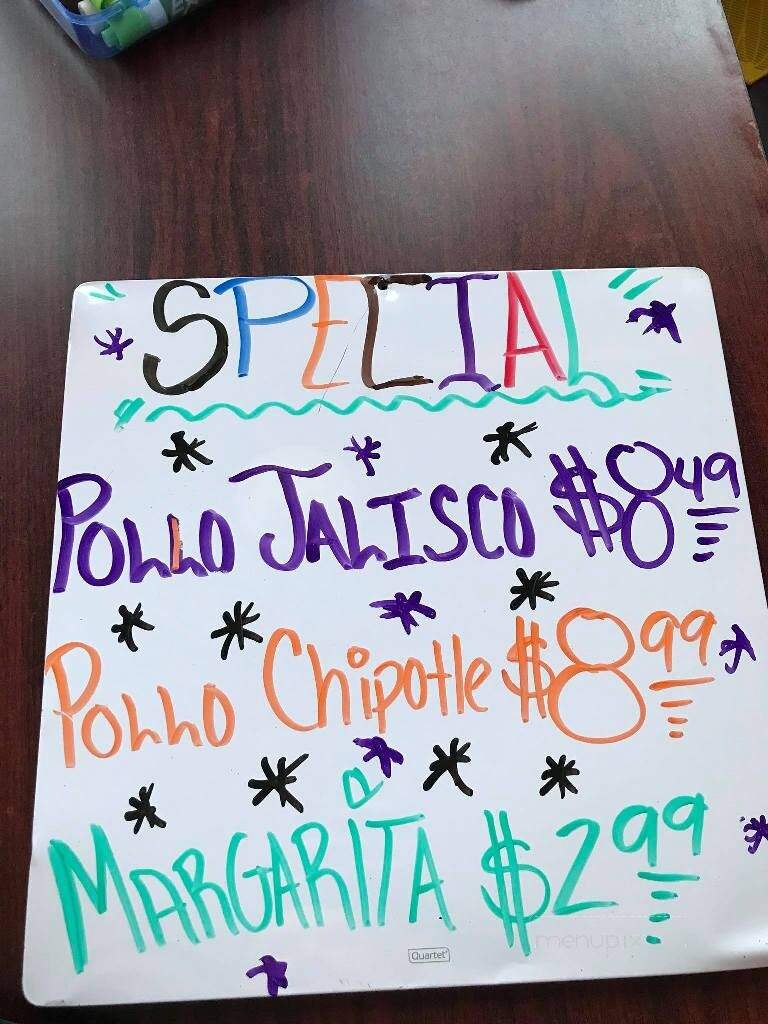 SPECIAL
POLLO JALISCO $8.49
POLLO Chipotle $8.99
MARGARITA $2.99
Quartet
menupix